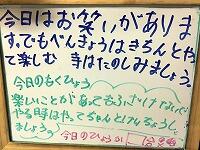 今日はお笑いがありま
す。でもべんきょうはきちんとやっ
て楽しむ 時はたのしみましょう。
今日のもくひょう
楽しいことがあってもふざけないで
やる時はやってちゃんとけんちょうし
ましょう。
今日のひょうか